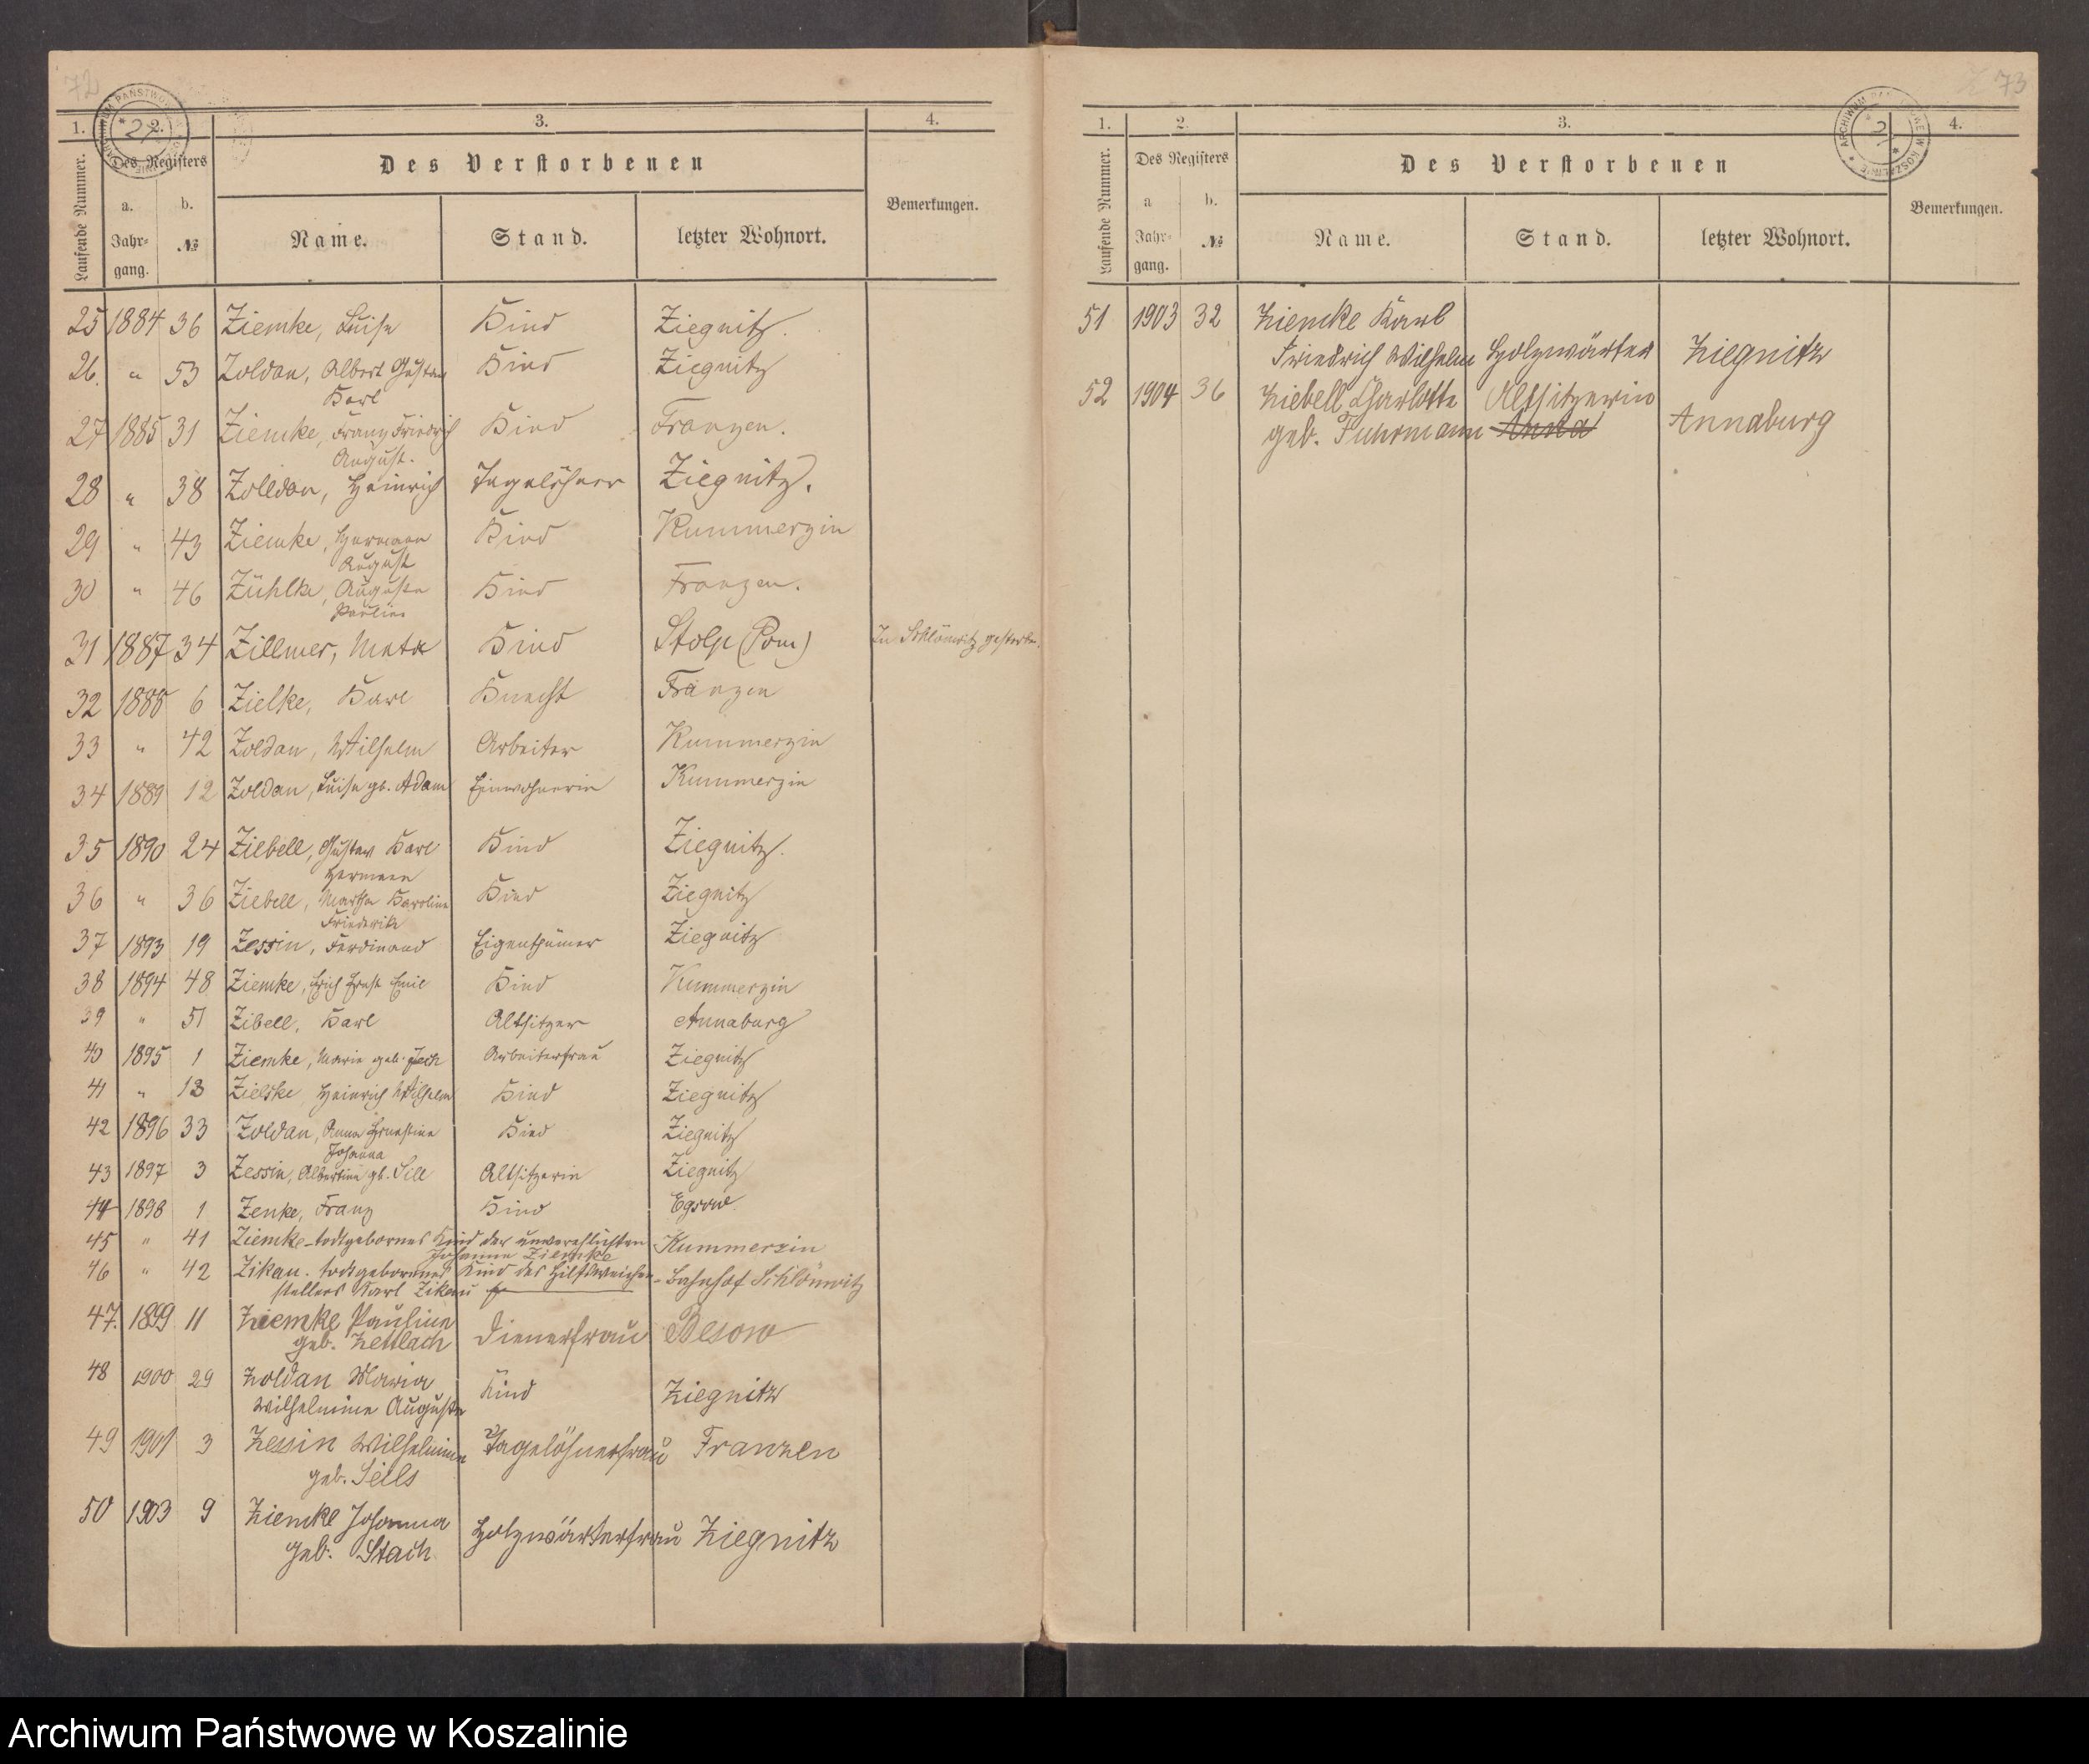 72
1. 2. 3. 4.
Laufende Nummer. Des Registers Des Verstorbenen Bemerkungen.
a. b.
Jahrgang. № Name. Stand. letzter Wohnort.
25 1884 36 Ziemke, Luise Kind Ziegnitz.
26. " 53 Zoldan, Albert Gustav Kind Ziegnitz
Karl
27 1885 31 Ziemke, Franz Friedrich Kind Franzen.
August.
28 " 38 Zolldan, Heinrich Tagelöhner Ziegnitz.
29 " 43 Ziemke, Hermann Kind Kummerzin
August
30 " 46 Zühlke, Auguste Kind Franzen.
Pauline
31 1887 34 Zillmer, Meta Kind Stolp (Pom) In Schlönwitz gestorben.
32 1888 6 Zielke, Karl Knecht Franzen
33 " 42 Zoldan, Wilhelm Arbeiter Kummerzin
34 1889 12 Zoldan, Luise gb. Adam Einwohnerin Kummerzin
35 1890 24 Ziebell, Gustav Karl Kind Ziegnitz.
Hermann
36 " 36 Ziebell, Martha Karoline Kind Ziegnitz
Friederike
37 1893 19 Zessin, Ferdinand Eigenthümer Ziegnitz
38 1894 48 Ziemke, Erich Ernst Emil Kind Kummerzin
39 " 51 Zibell, Karl Altsitzer Annaburg
40 1895 1 Ziemke, Marie geb. Arbeiterfrau Ziegnitz
41 " 13 Zielske Heinrich Wilhelm Kind Ziegnitz
42 1896 33 Zoldan, Anna Ernestine Kind Ziegnitz
Johanna
43 1897 3 Zessin, Albertine gb. Sell Altsitzerin Ziegnitz
44 1898 1 Zenke, Franz Kind Egsow.
45 " 41 Ziemke - todtgebornes Kind der unverehlichten Kummerzin
Johanne Ziemke
46 " 42 Zikau. todtgebornes Kind des Hilfsweichen- Bahnhof Schlönwitz
stellers Karl Zikau
47. 1899 11 Ziemke Pauline Dienerfrau Besow
geb. Zettlach
48 1900 29 Zoldan Maria Kind Ziegnitz
Wilhelmine Auguste
49 1901 3 Zessin Wilhelmine Tagelöhnerfrau Franzen
geb. Sells
50 1903 9 Ziemke Johanna Holzwärterfrau Ziegnitz
geb. Stach
73
1. 2. 3. 4.
Laufende Nummer. Des Registers Des Verstorbenen Bemerkungen.
a b.
Jahrgang. № Name. Stand. letzter Wohnort.
51 1903 32 Ziemke Karl
Friedrich Wilhelm Holzwärter Ziegnitz
52 1904 36 Ziebell Charlotte Altsitzerin Annaburg
geb. Fuhrmann Anna
Archiwum Państwowe w Koszalinie